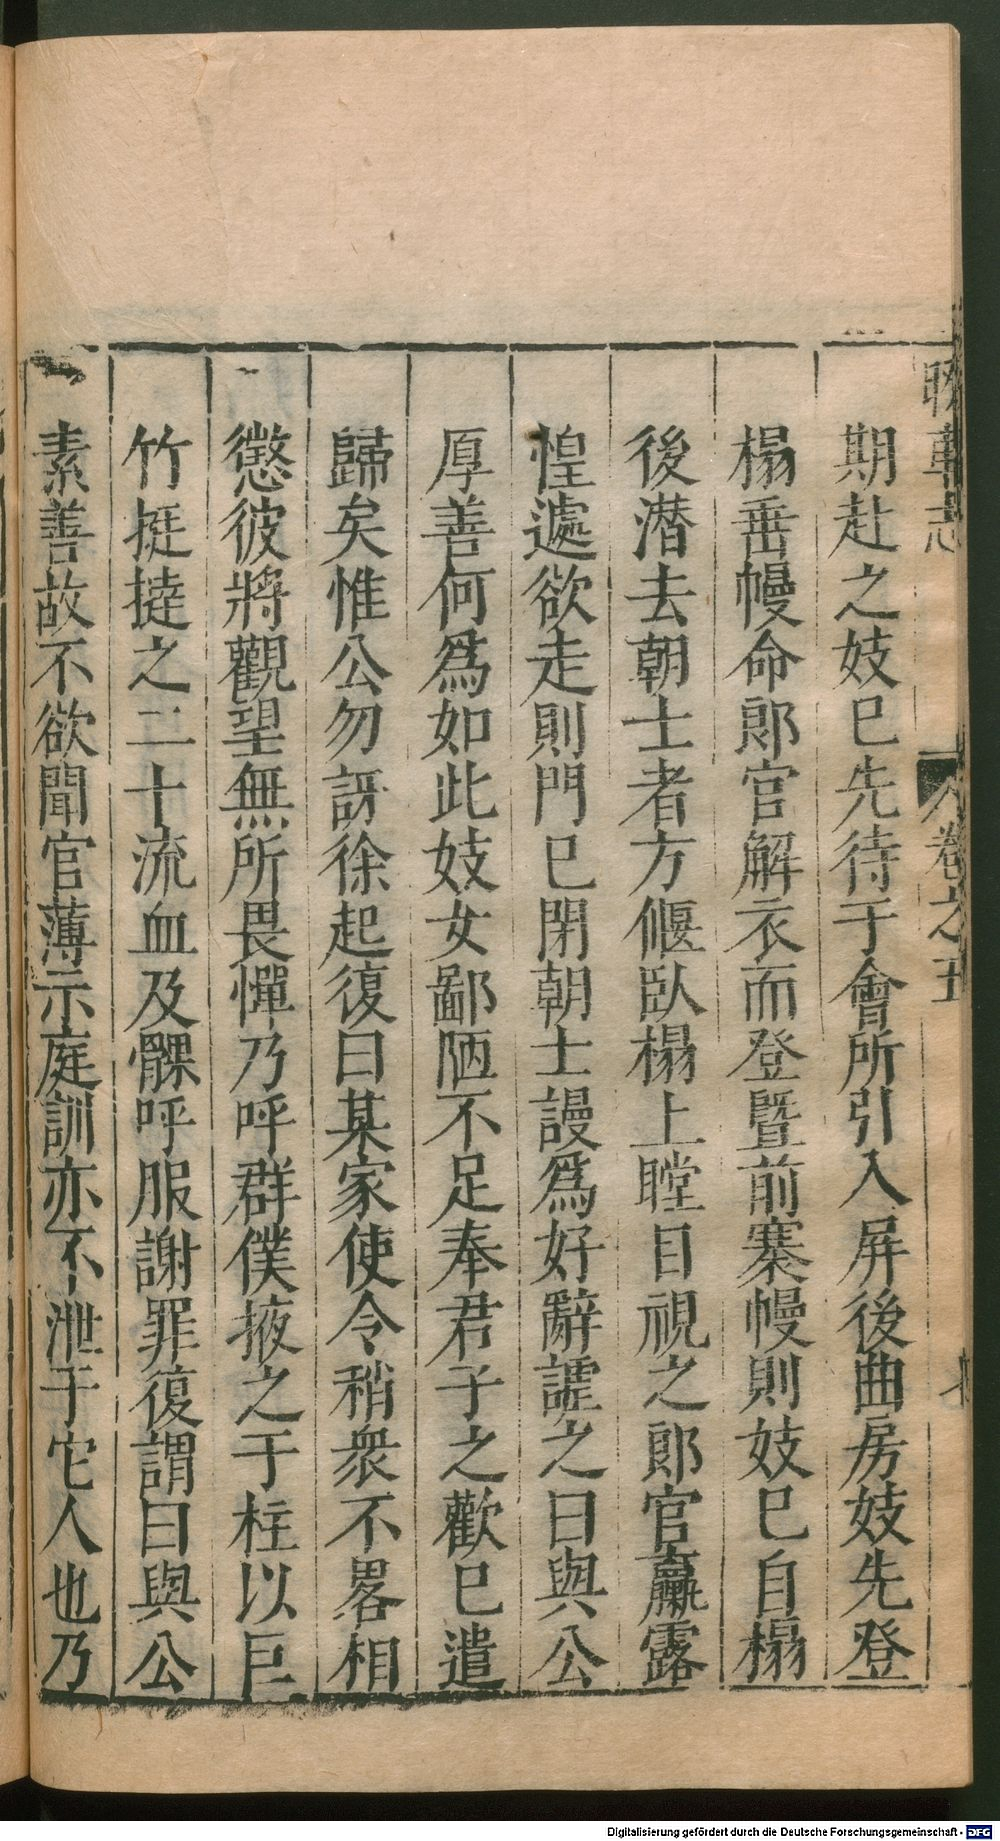 卷之五
期赴之妓已先待于會所引入屏後曲房妓先登
榻垂幔命郎官解衣而登暨前褰幔則妓已自榻
後潛去朝士者方偃臥榻上瞠目視之郎官羸露
惶遽欲走則門已閉朝士謾爲好辭謔之曰與公
厚善何爲如此妓女鄙陋不足奉君子之歡已遣
歸矣惟公勿訝徐起復曰某家使令稍衆不畧相
懲彼將觀望無所畏憚乃呼群僕掖之于柱以巨
竹挺撻之二十流血及髁呼服謝罪復謂曰與公
素善故不欲聞官薄示庭訓亦不泄于它人也乃
Digitalisierung gefördert durch die Deutsche Forschungsgemeinschaft - DFG